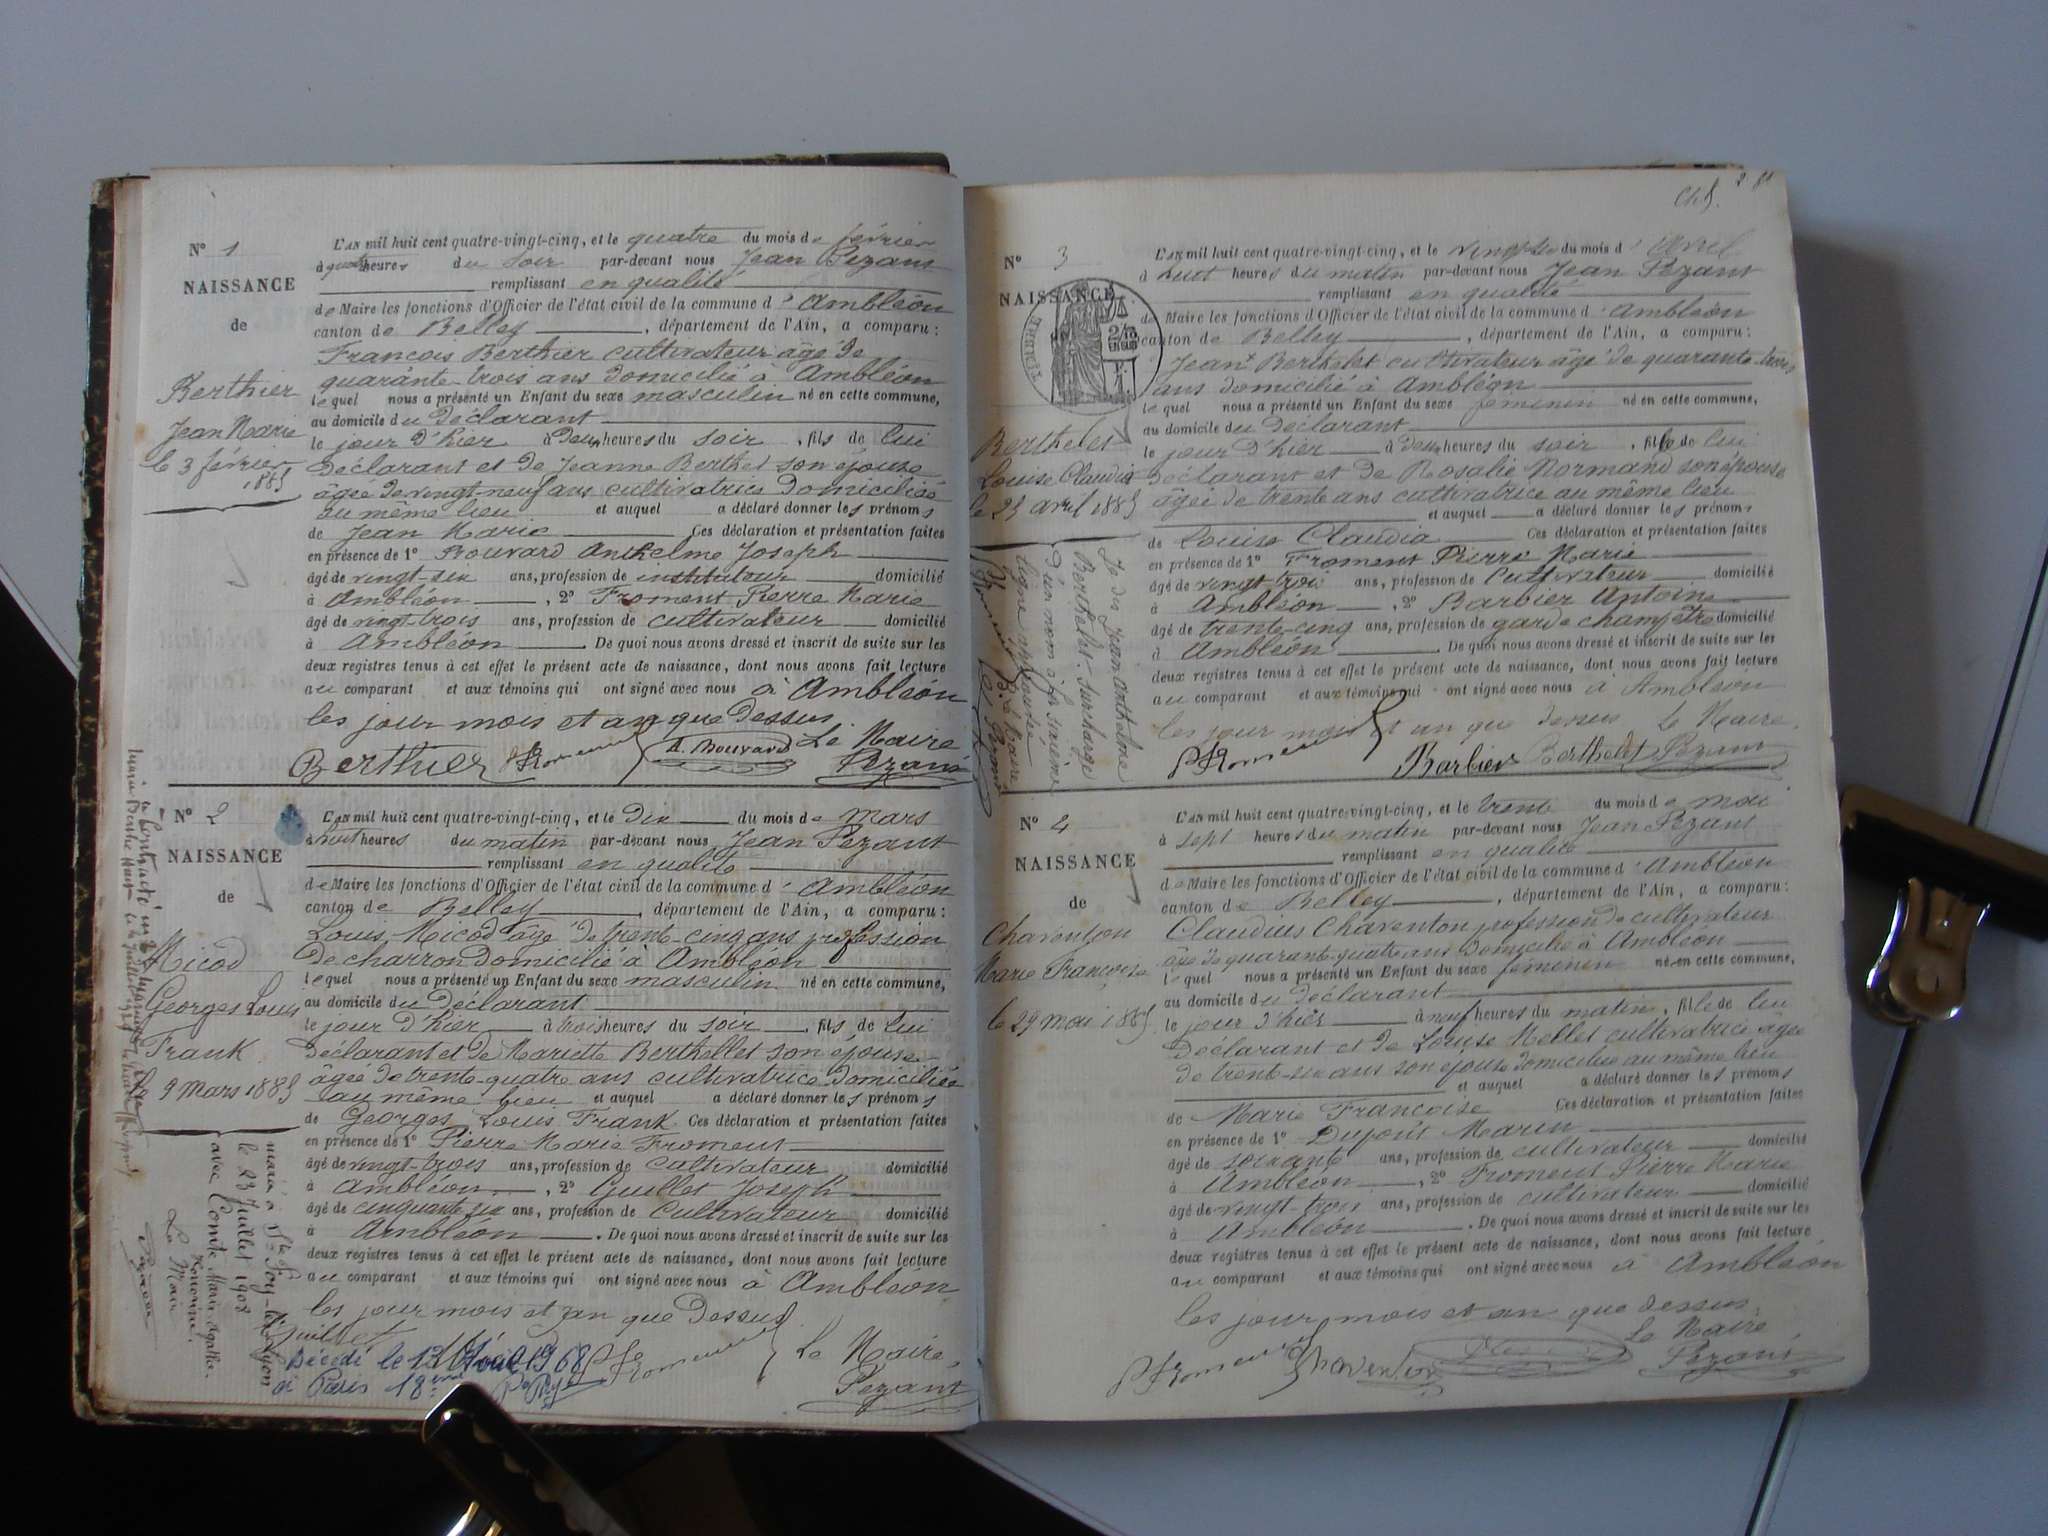 N° 1
NAISSANCE
de
Berthier
Jean Marie
le 3 février
1885
L'AN mil huit cent quatre-vingt-cinq, et le quatre du mois de février
à quatre heures du soir par-devant nous Jean Pezant
remplissant en qualité
de Maire les fonctions d'Officier de l'état civil de la commune d'Ambléon
canton de Belley, département de l'Ain, a comparu :
François Berthier cultivateur âgé de
quarante-trois ans domicilié à Ambléon
lequel nous a présenté un Enfant du sexe masculin né en cette commune,
au domicile du déclarant
le jour d'hier à deux heures du soir, fils de lui
déclarant et de Jeanne Berthet son épouse
âgée de vingt-neuf ans cultivatrice domiciliée
au même lieu et auquel a déclaré donner les prénoms
de Jean Marie Ces déclaration et présentation faites
en présence de 1° Bouvard Anthelme Joseph
âgé de vingt-six ans, profession de instituteur domicilié
à Ambléon, 2° Froment Pierre Marie
âgé de vingt-trois ans, profession de cultivateur domicilié
à Ambléon. De quoi nous avons dressé et inscrit de suite sur les
deux registres tenus à cet effet le présent acte de naissance, dont nous avons fait lecture
au comparant et aux témoins qui ont signé avec nous à Ambléon
les jour mois et an que dessus.
Berthier P Froment A. Bouvard Le Maire
Pezant
N° 2
NAISSANCE
de
Micod
Georges Louis
Frank
le 9 Mars 1885
marié à Ste Foy-lès-Lyon
le 23 Juillet 1908
avec Comte Marie Agathe
Honorine.
Le Maire
Pezant
L'AN mil huit cent quatre-vingt-cinq, et le dix du mois de mars
à huit heures du matin par-devant nous Jean Pezant
remplissant en qualité
de Maire les fonctions d'Officier de l'état civil de la commune d'Ambléon
canton de Belley, département de l'Ain, a comparu :
Louis Micod âgé de trente-cinq ans profession
de charron domicilié à Ambléon
lequel nous a présenté un Enfant du sexe masculin né en cette commune,
au domicile du déclarant
le jour d'hier à trois heures du soir, fils de lui
déclarant et de Mariette Berthellet son épouse
âgée de trente-quatre ans cultivatrice domiciliée
au même lieu et auquel a déclaré donner les prénoms
de Georges Louis Frank Ces déclaration et présentation faites
en présence de 1° Pierre Marie Froment
âgé de vingt-trois ans, profession de cultivateur domicilié
à Ambléon, 2° Guillet Joseph
âgé de cinquante six ans, profession de cultivateur domicilié
à Ambléon. De quoi nous avons dressé et inscrit de suite sur les
deux registres tenus à cet effet le présent acte de naissance, dont nous avons fait lecture
au comparant et aux témoins qui ont signé avec nous à Ambléon
les jour mois et an que dessus
P Froment Le Maire,
Pezant
juillet
Décédé le 13 1968
à Paris 18ème
Ch8.
N° 3
NAISSANCE
Berthelet
Louise Claudia
le 25 avril 1885
Je dis Jean Anthelme
Berthelet. Surcharge
d'un nom à la 6ème
ligne approuvée
B. Le Maire
L'AN mil huit cent quatre-vingt-cinq, et le vingt-six du mois d'Avril
à huit heures du matin par-devant nous Jean Pezant
remplissant en qualité
de Maire les fonctions d'Officier de l'état civil de la commune d'Ambléon
canton de Belley, département de l'Ain, a comparu :
Jean Berthelet cultivateur âgé de quarante-trois
ans domicilié à Ambléon
lequel nous a présenté un Enfant du sexe féminin né en cette commune,
au domicile du déclarant
le jour d'hier à deux heures du soir, fille de lui
déclarant et de Rosalie Normand son épouse
âgée de trente ans cultivatrice au même lieu
et auquel a déclaré donner les prénoms
de Louise Claudia Ces déclaration et présentation faites
en présence de 1° Froment Pierre Marie
âgé de vingt-trois ans, profession de cultivateur domicilié
à Ambléon, 2° Barbier Antoine
âgé de trente-cinq ans, profession de garde champêtre domicilié
à Ambléon. De quoi nous avons dressé et inscrit de suite sur les
deux registres tenus à cet effet le présent acte de naissance, dont nous avons fait lecture
au comparant et aux témoins qui ont signé avec nous à Ambléon
les jour mois et an que dessus Le Maire.
P Froment Barbier Berthelet Pezant
N° 4
NAISSANCE
de
Charenton
Marie Françoise
le 29 mai 1885
L'AN mil huit cent quatre-vingt-cinq, et le trente du mois de mai
à sept heures du matin par-devant nous Jean Pezant
remplissant en qualité
de Maire les fonctions d'Officier de l'état civil de la commune d'Ambléon
canton de Belley, département de l'Ain, a comparu :
Claudius Charenton profession de cultivateur
âgé de quarante-quatre ans domicilié à Ambléon
lequel nous a présenté un Enfant du sexe féminin né en cette commune,
au domicile du déclarant
le jour d'hier à neuf heures du matin, fille de lui
déclarant et de Louise Mellet cultivatrice âgée
de trente-six ans son épouse domiciliée au même lieu
et auquel a déclaré donner les prénoms
de Marie Françoise Ces déclaration et présentation faites
en présence de 1° Dupont Marin
âgé de soixante ans, profession de cultivateur domicilié
à Ambléon, 2° Froment Pierre Marie
âgé de vingt-trois ans, profession de cultivateur domicilié
à Ambléon. De quoi nous avons dressé et inscrit de suite sur les
deux registres tenus à cet effet le présent acte de naissance, dont nous avons fait lecture
au comparant et aux témoins qui ont signé avec nous à Ambléon
les jour mois et an que dessus.
Le Maire
P Froment Charenton Pezant